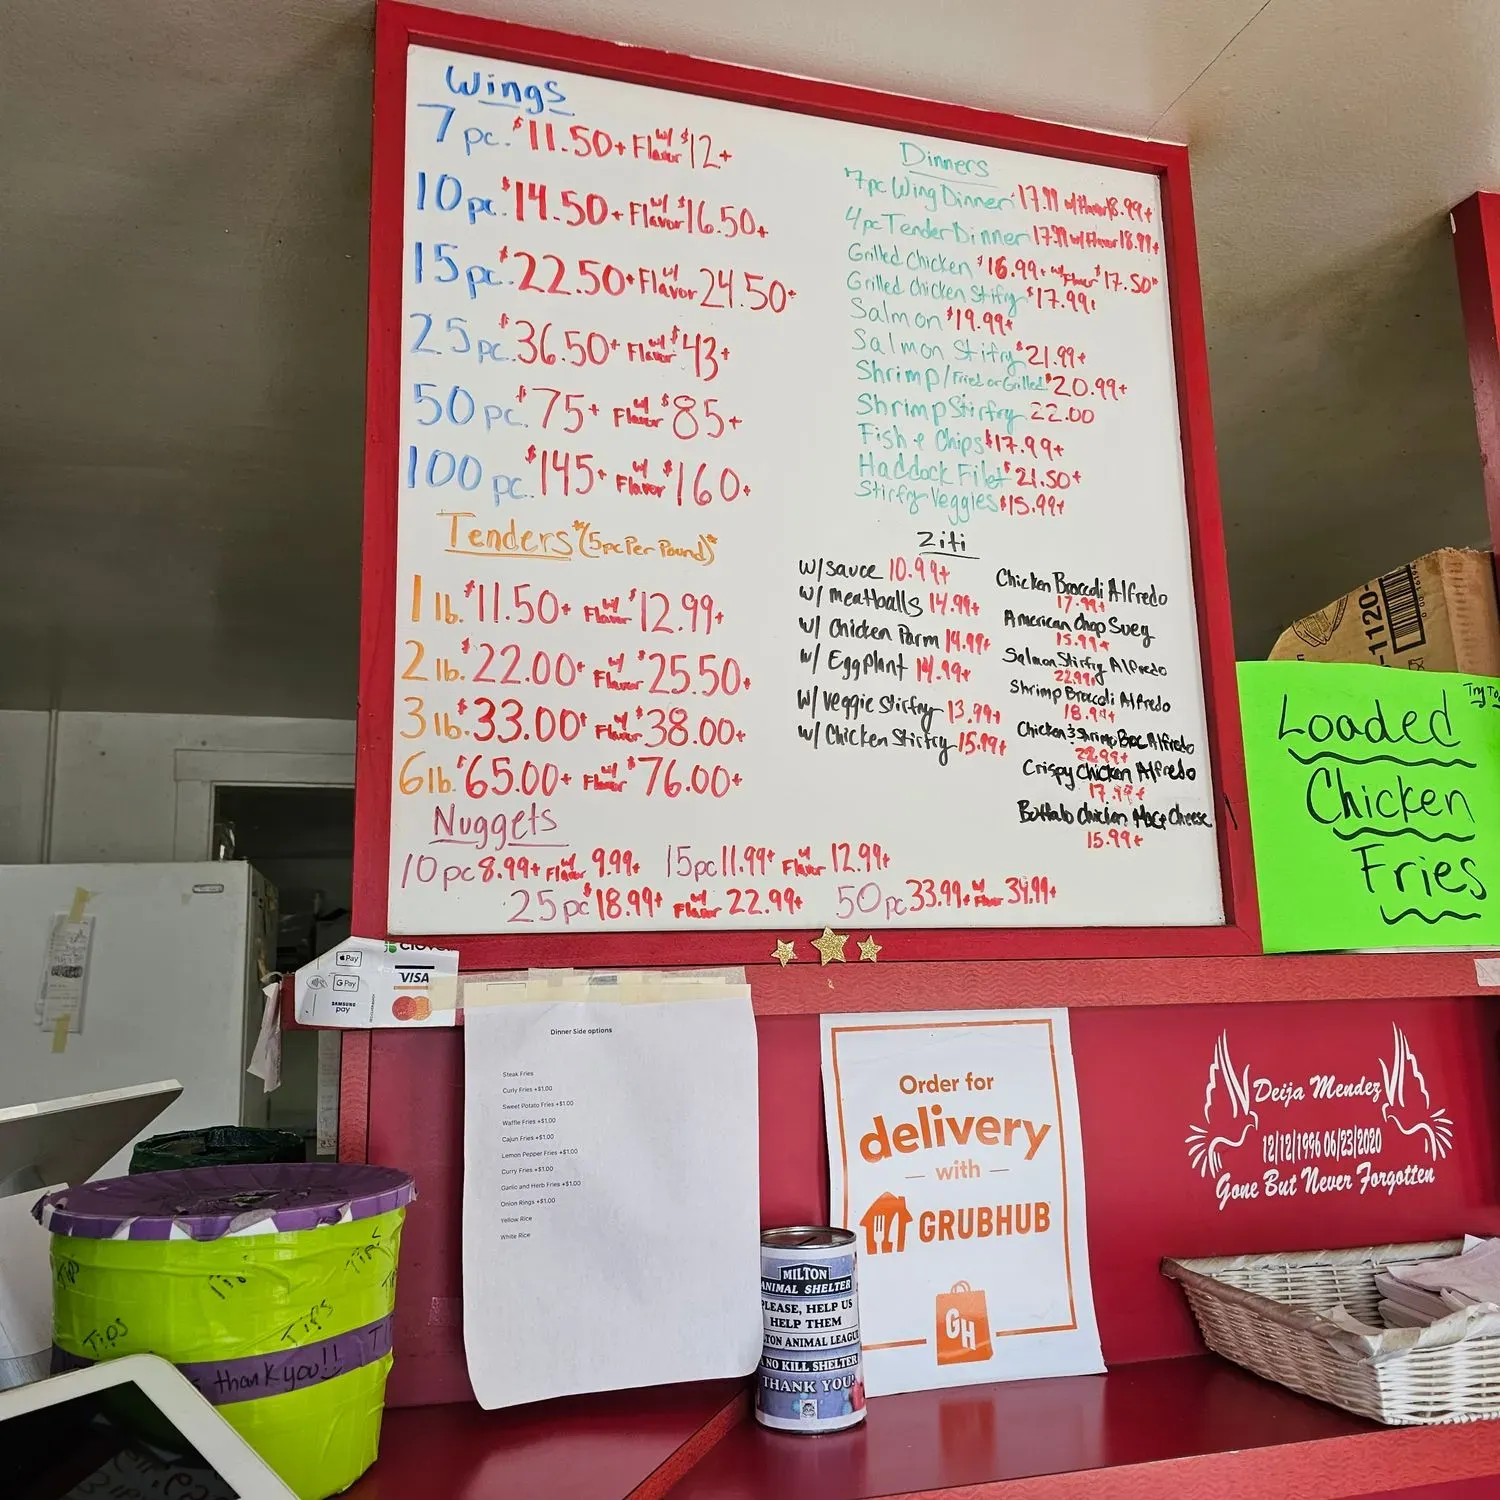 Wings
7 pc. $11.50+ w/ Flavor $12+
10 pc. $14.50+ w/ Flavor $16.50+
15 pc. $22.50+ w/ Flavor 24.50+
25 pc. $36.50+ w/ Flavor $43+
50 pc. $75+ w/ Flavor $85+
100 pc. $145+ w/ Flavor $160+
Tenders *(5pc Per Pound)*
1 lb. $11.50+ w/ Flavor $12.99+
2 lb. $22.00+ w/ Flavor $25.50+
3 lb. $33.00+ w/ Flavor $38.00+
6 lb. $65.00+ w/ Flavor $76.00+
Nuggets
10 pc 8.99+ w/ Flavor 9.99+ 15 pc 11.99+ w/ Flavor 12.99+
25 pc $18.99+ w/ Flavor 22.99+ 50 pc 33.99+ w/ Flavor 34.99+
Dinners
7pc Wing Dinner 17.99 w/ Flavor 18.99+
4pc Tender Dinner 17.99 w/ Flavor 18.99+
Grilled Chicken $16.99+ w/ Flavor $17.50+
Grilled Chicken Stirfry $17.99+
Salmon $19.99+
Salmon Stirfry $21.99+
Shrimp/Fried or Grilled $20.99+
Shrimp Stirfry 22.00
Fish & Chips $17.99+
Haddock Filet $21.50+
Stirfry Veggies $15.99+
Ziti
w/ sauce 10.99+
w/ meatballs 14.99+
w/ Chicken Parm 14.99+
w/ Eggplant 14.99+
w/ Veggie Stirfry 13.99+
w/ Chicken Stirfry 15.99+
Chicken Broccoli Alfredo
17.99+
American Chop Suey
15.99+
Salmon Stirfry Alfredo
22.99+
Shrimp Broccoli Alfredo
18.99+
Chicken & Shrimp Broc Alfredo
22.99+
Crispy Chicken Alfredo
17.99+
Buffalo Chicken Mac & Cheese
15.99+
Try To
Loaded
Chicken
Fries
-1120-
clover
Pay
G Pay
SAMSUNG pay
VISA
Dinner Side options
Steak Fries
Curly Fries +$1.00
Sweet Potato Fries +$1.00
Waffle Fries +$1.00
Cajun Fries +$1.00
Lemon Pepper Fries +$1.00
Curry Fries +$1.00
Garlic and Herb Fries +$1.00
Onion Rings +$1.00
Yellow Rice
White Rice
Order for
delivery
with
GRUBHUB
GH
Deija Mendez
12/12/1996 06/23/2020
Gone But Never Forgotten
MILTON
ANIMAL SHELTER
PLEASE, HELP US
HELP THEM
TON ANIMAL LEAGU
A NO KILL SHELTER
THANK YOU!
Tips
Tips
Tips
Tips
thank you!!